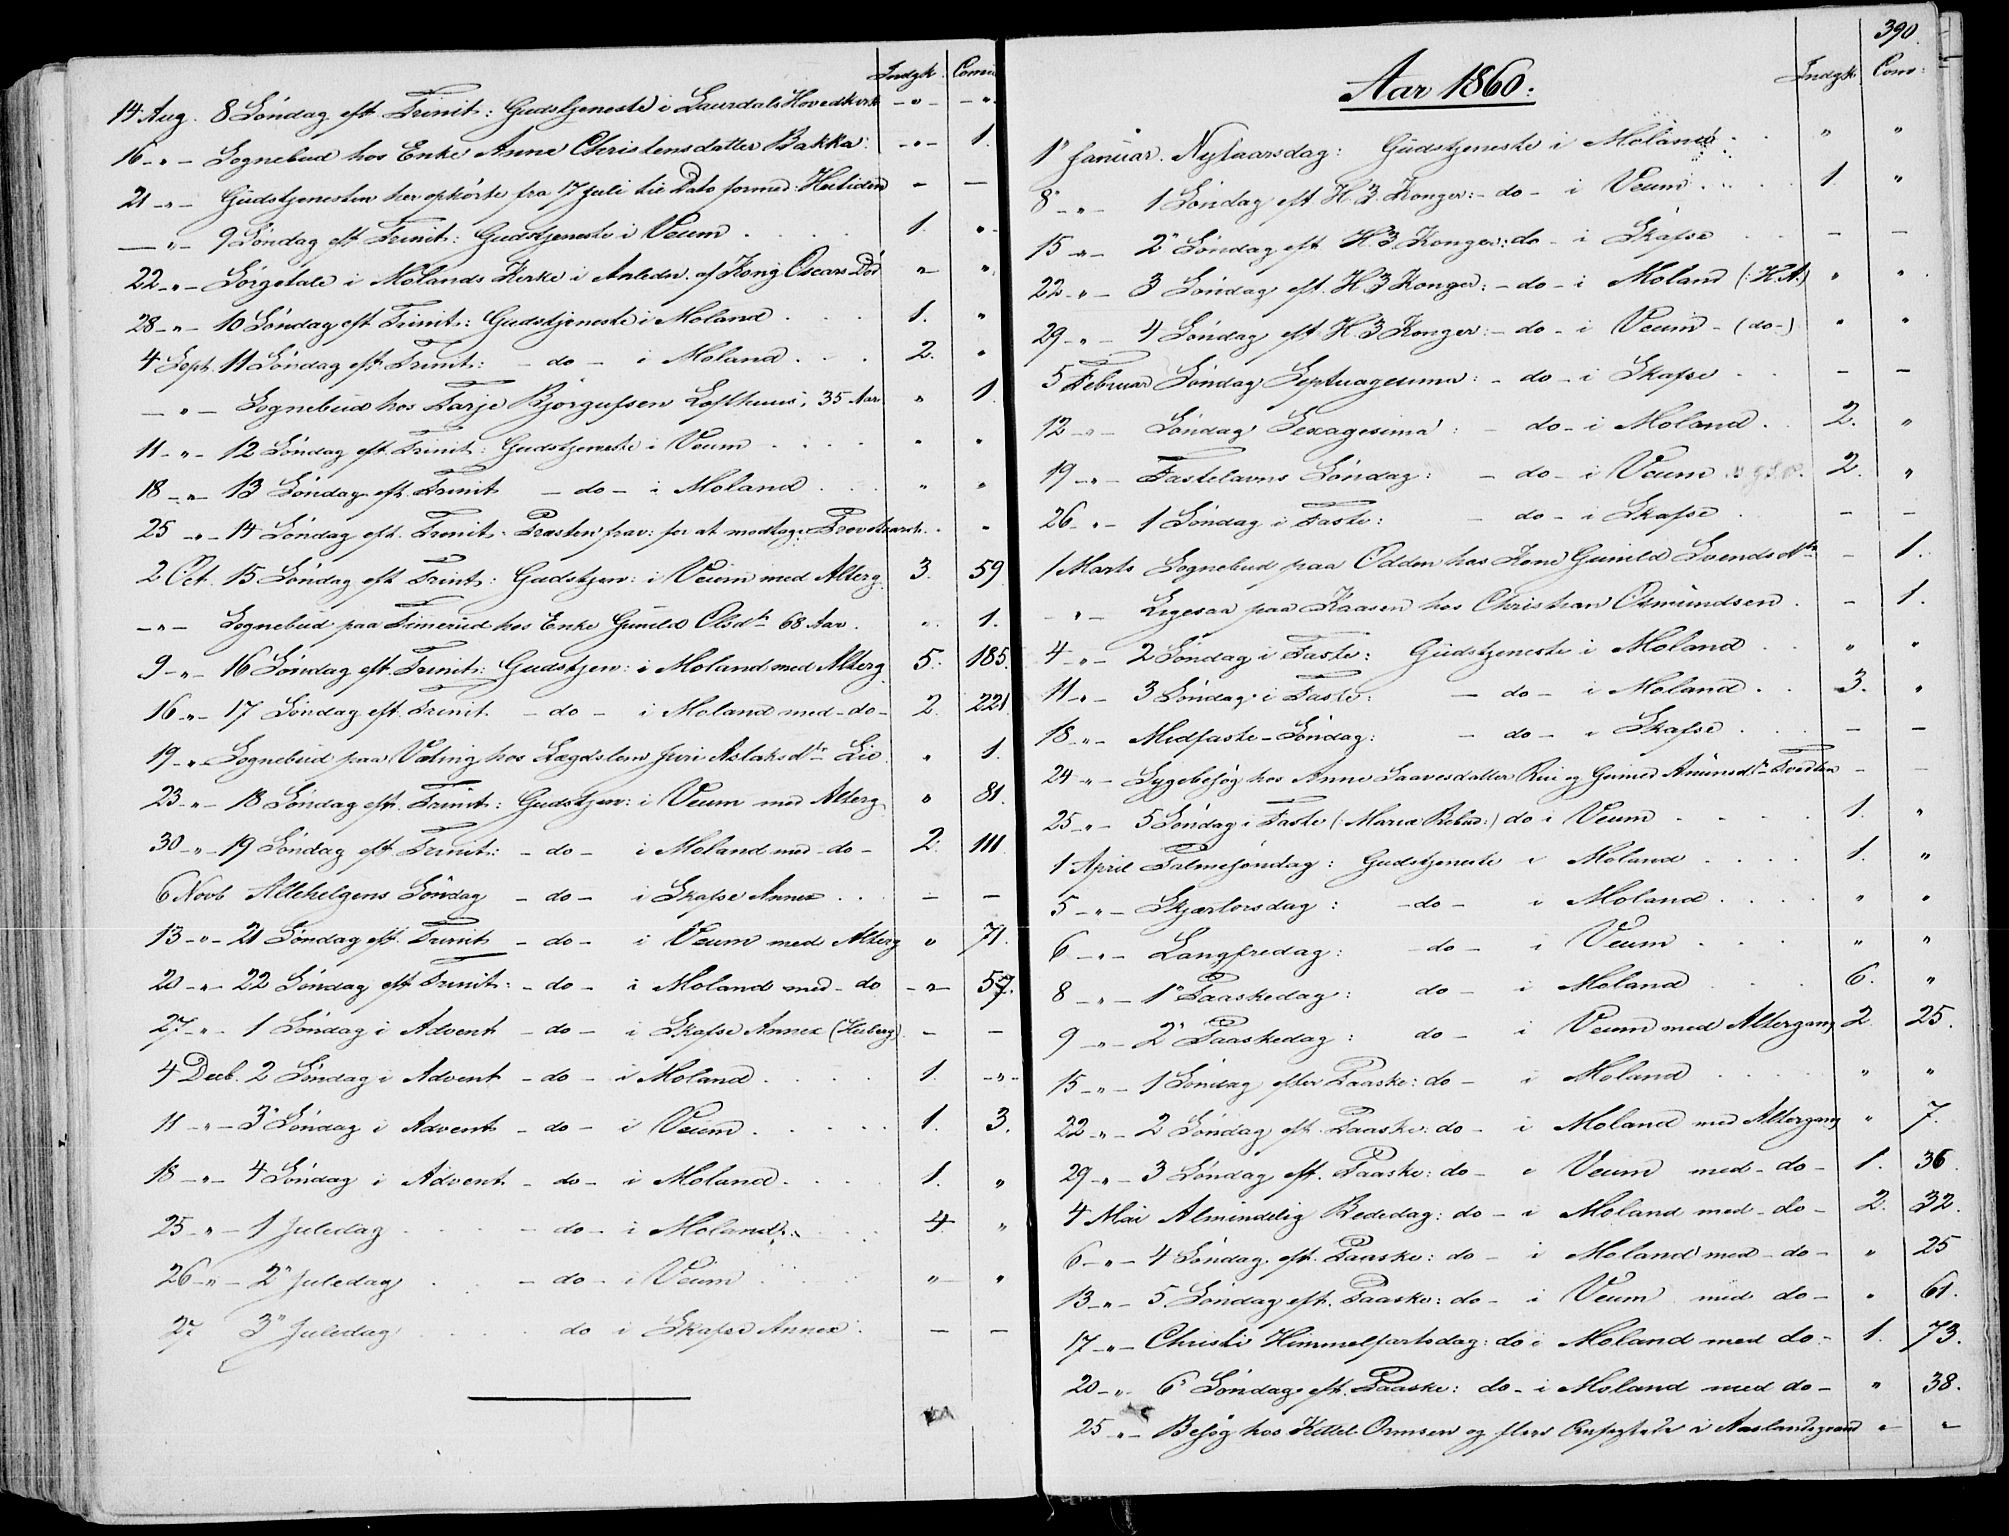 Indgk. Comu
14 Aug. 8 Söndag eft. Trinit: Gudstjeneste i Laurdals Hovedkirk - " - - "
16 - " - Sognebud hos Enke Anne Christensdatter Bakka: - " - 1.
21 - " - Gudstjenesten her ophörte fra 17 Juli til Dato formed: Heitiden - -
- " - 9 Söndag eft Trinit: Gudstjeneste i Veum . . . . 1. "
22 - " - Sörgetale i Molands Kirke i Anledn. af Kong Oscars Död " "
28 - " - 10 Söndag eft Trinit: Gudstjeneste i Moland . . . 1. "
4 Sept. 11 Söndag eft Trinit: - do - i Moland . . . 2. "
- " - Sognebud hos Tarje Björgufsen Lofthuus, 35 Aar " 1.
11 - " - 12 Söndag eft. Trinit: Gudstjeneste i Veum . . . . " "
18 - " - 13 Söndag eft. Trinit - do - i Moland . . . " "
25 - " - 14 Söndag eft. Trinit: Præsten frav: for at modtage . "
2 Oct. 15 Söndag eft Trinit: Gudstjen: i Veum med Alterg. 3. 59
- " - Sognebud paa Timerud hos Enke Gunild Olsdtr 68 Aar. " 1.
9 - " - 16 Söndag eft. Trinit: Gudstjen: i Moland med Alterg. 5. 185.
16 - " - 17 Söndag eft. Trinit - do - i Moland med - do - 2. 221.
19 - " - Sognebud paa hos Lægdslem Juri Aslaksdtr Lie " 1.
23 - " - 18 Söndag eft. Trinit: Gudstjen: i Veum med Alterg. " 81.
30 - " - 19 Söndag eft. Trinit: - do - i Moland med - do - 2. 111.
6 Novb Allehelgens Söndag - do - i Skafse Annex . . - -
13 - " - 21 Söndag eft. Trinit - do - i Veum med Alterg " 71.
20 - " - 22 Söndag eft Trinit: - do - i Moland med - do - " - 57.
27 - " - 1 Söndag i Advent - do - i Skafse Annex - -
4 Decb. 2 Söndag i Advent - do - i Moland . . . . 1. - " -
11 - " - 3" Söndag i Advent - do - i Veum . . . . . 1. 3.
18 - " - 4 Söndag i Advent - do - i Moland . . . . 1. "
25 - " - 1 Juledag . . . - do - i Moland . . . 4. "
26 - " - 2" Juledag . . - do - i Veum . . . " "
27 3" Juledag . . . . do i Skafse Annex . - -
390.
Aar 1860. Indgk. Com:
1" Januar. Nytaarsdag: Gudstjeneste i Moland . . " "
8" - " - 1 Söndag eft H. 3 Konger: - do - i Veum . . . . 1. "
15 - " - 2" Söndag eft H. 3 Konger: do - i Skafse . . - -
22 - " - 3 Söndag eft. H. 3 Konger: - do - i Moland (: H.A.) " "
29 - " - 4 Söndag eft H. 3 Konger: - do - i Veum - (do -) " "
5 Februar Söndag Septuagesima: - do - i Skafse . . - -
12 - " - Söndag Sexagesima: - do - i Moland . . 2. "
19 - " - Fastelavns Söndag: - do - i Veum 2. "
26 - " - 1 Söndag i Faste: - do - i Skafse . - -
1 Marts Sognebud paa Odden hos Kone Gunild Svendsdtr - 1.
- " - Ligesaa paa Kaasen hos Christian Osmundsen . - 1.
4 - " - 2 Söndag i Faste: Gudstjeneste i Moland . . " "
11 - " - 3 Söndag i Faste: - do - i Moland . . 3. "
18 - " - Midfaste-Söndag: - do - i Skafse . . . - -
24 - " - Sygebesög hos Anne Saavesdatter Rui og Aanundtr Tvedten - -
25 - " - 5 Söndag i Faste (: Mariæ Bebud:) do i Veum . . . . 1. "
1 April Palmesöndag: Gudstjeneste i Moland . . . . 1. "
5 - " - Skjærtorsdag: - do - i Moland . . . . " "
6 - " - Langfredag: - do - i Veum . . . " "
8 - " - 1" Paaskedag: do - i Moland . . . 6. "
9 - " - 2" Paaskedag: do - i Veum med Altergang 2. 25.
15 - " - 1 Söndag efter Paaske: do - i Moland . . . . " "
22 - " - 2 Söndag eft. Paaske: do - i Moland med Altergang " 7.
29 - " - 3 Söndag eft. Paaske: do - i Veum med - do - 1. 36.
4 Mai Almindelig Bededag: do - i Moland med - do - 2. 32.
6 - " - 4 Söndag eft. Paaske: do - i Moland med - do - " 25
13 - " - 5 Söndag eft. Paaske: do - i Veum med do - " 61.
17 - " - Christi Himmelfartsdag: do i Moland med do - 1. 73.
20 - " - 6" Söndag eft. Paaske: do - i Moland med do - " 38.
25 - " - Besög hos Kittel Ormsen og flere i - -